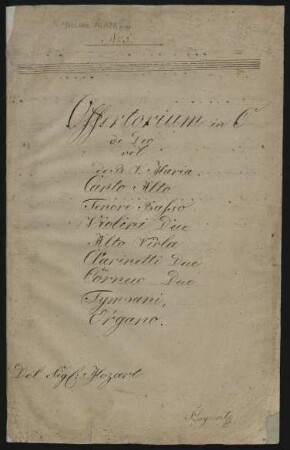 No 5.
Offertorium in C
de Deo
vel
de B. V. Maria.
Canto Alto
Tenore Basso
Violini Due
Alto Viola
Clarinetti Due
Cornuo Due
Tympani,
Organo.
Del Sigl: Mozart